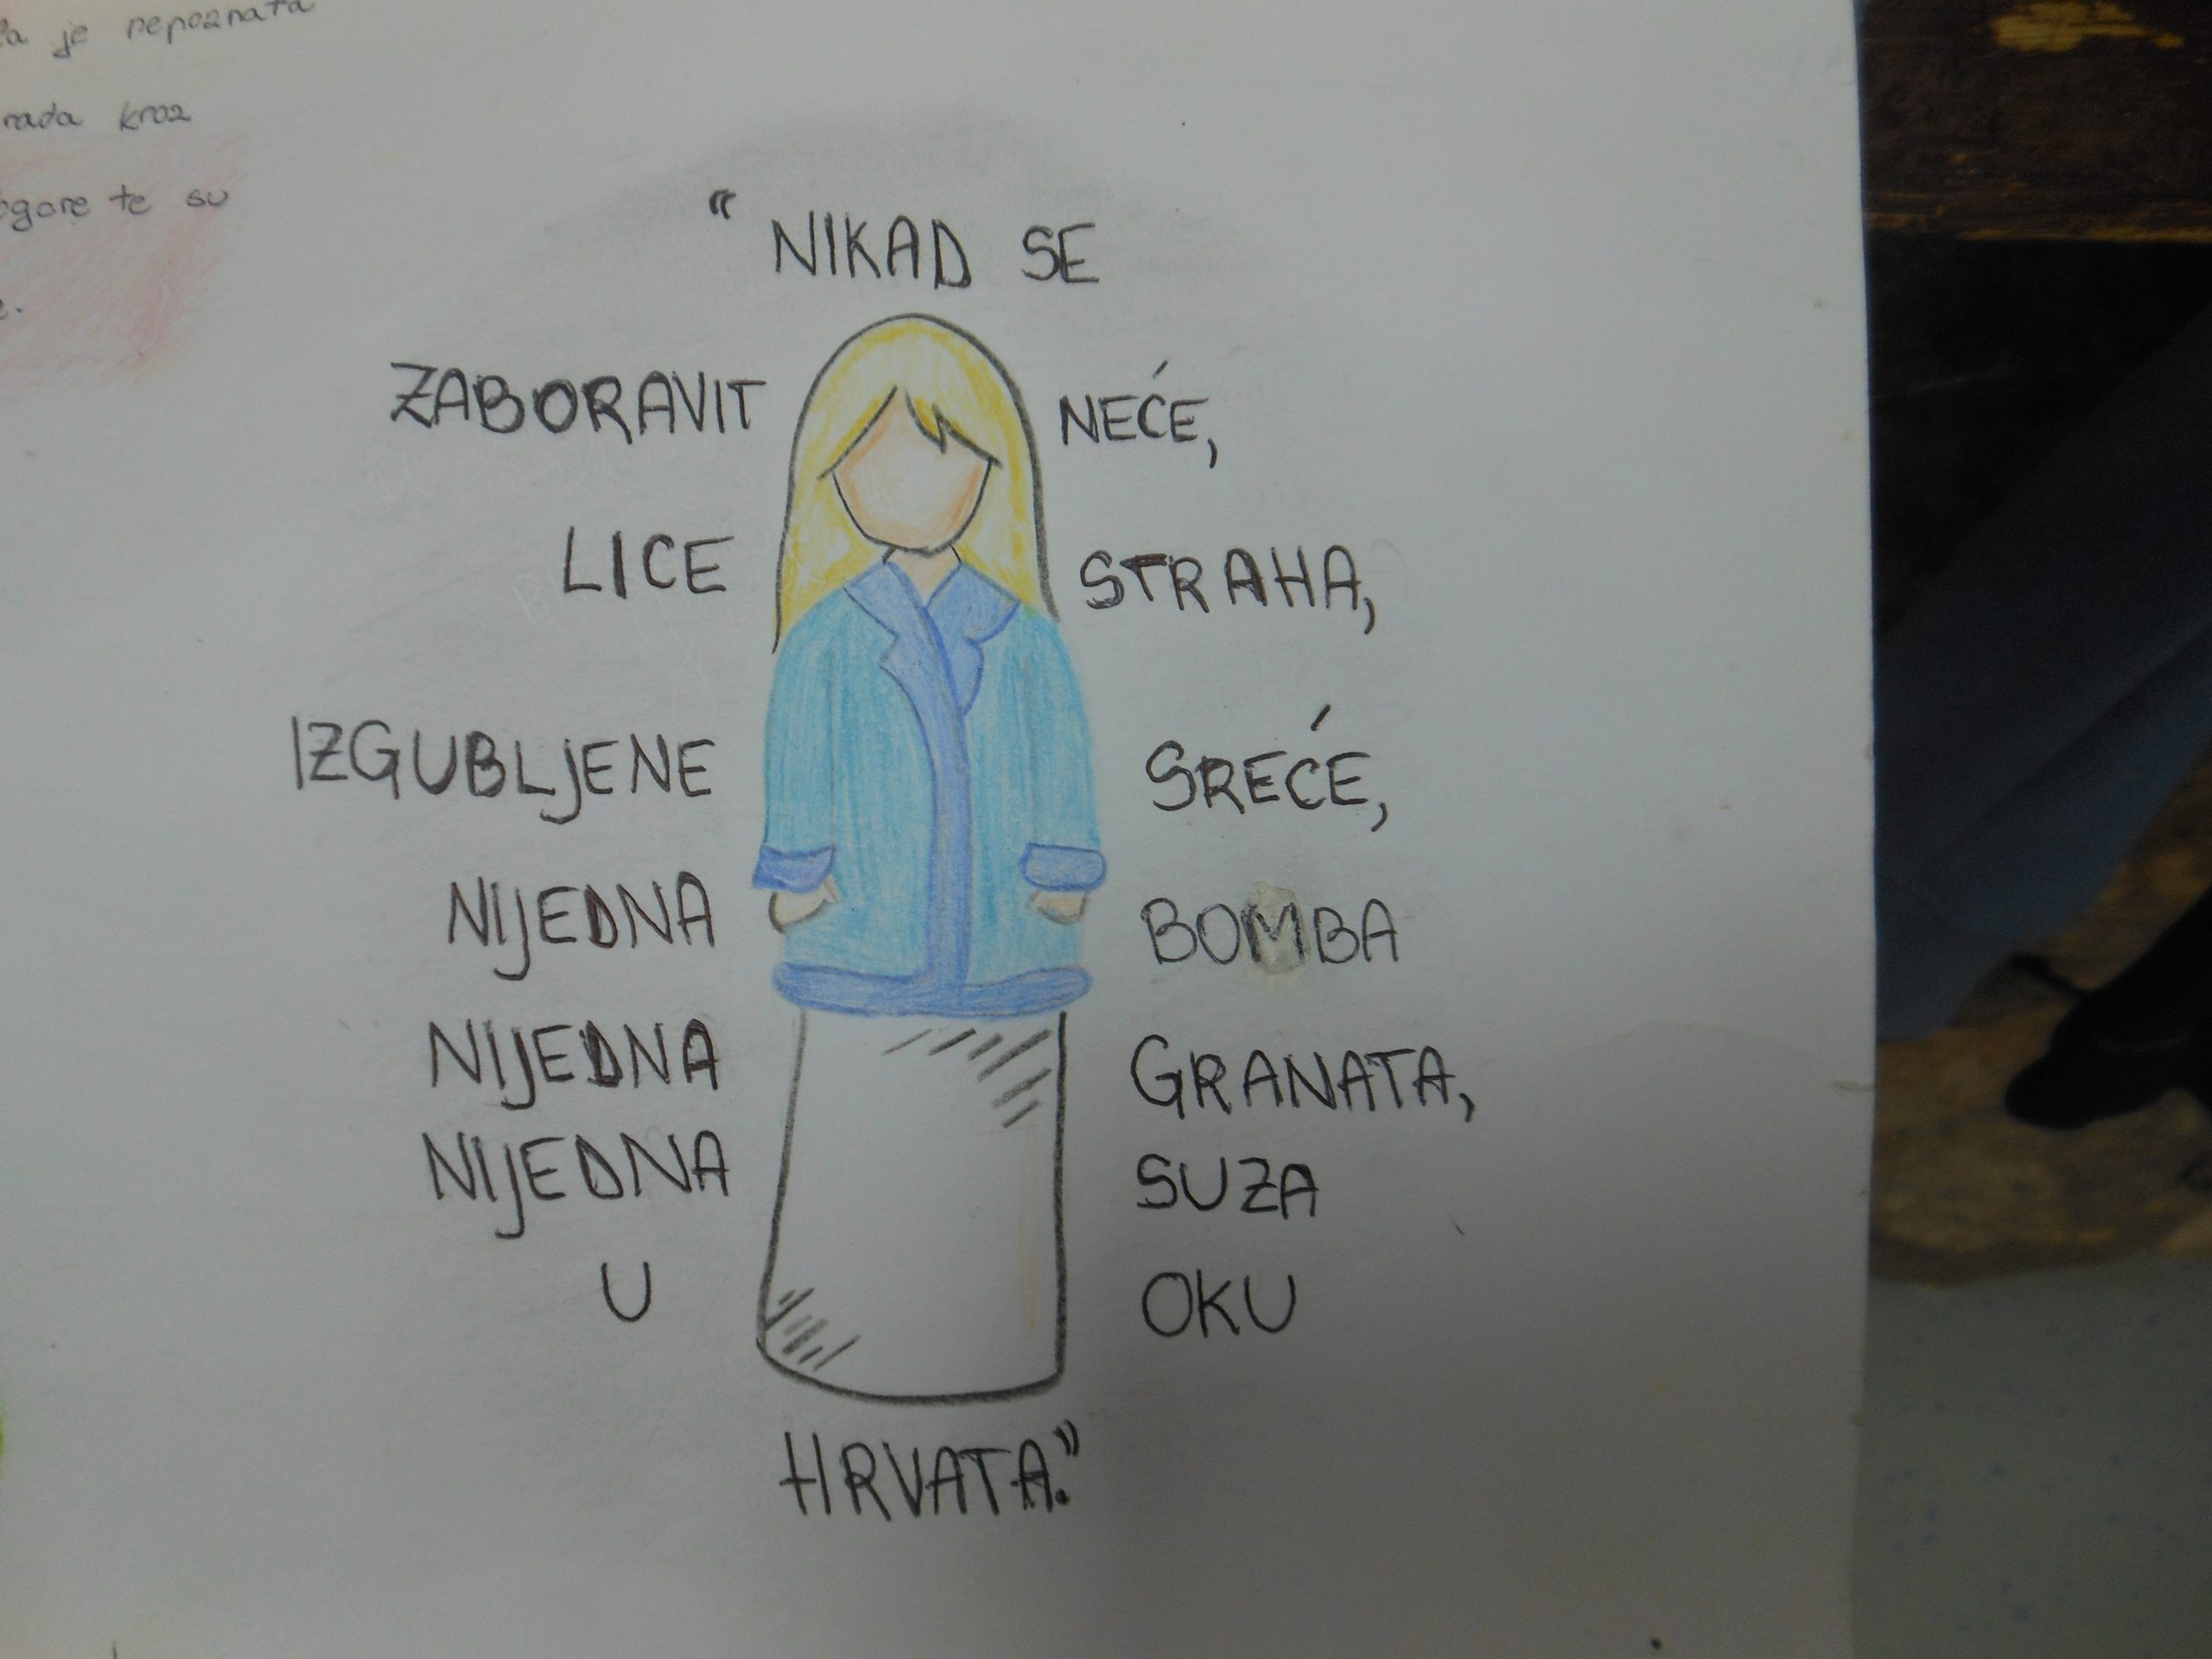 je nepoznata
rada kroz
te su
“ NIKAD SE
ZABORAVIT NEĆE,
LICE STRAHA,
IZGUBLJENE SREĆE,
NIJEDNA BOMBA
NIJEDNA GRANATA,
NIJEDNA SUZA
U OKU
HRVATA.”